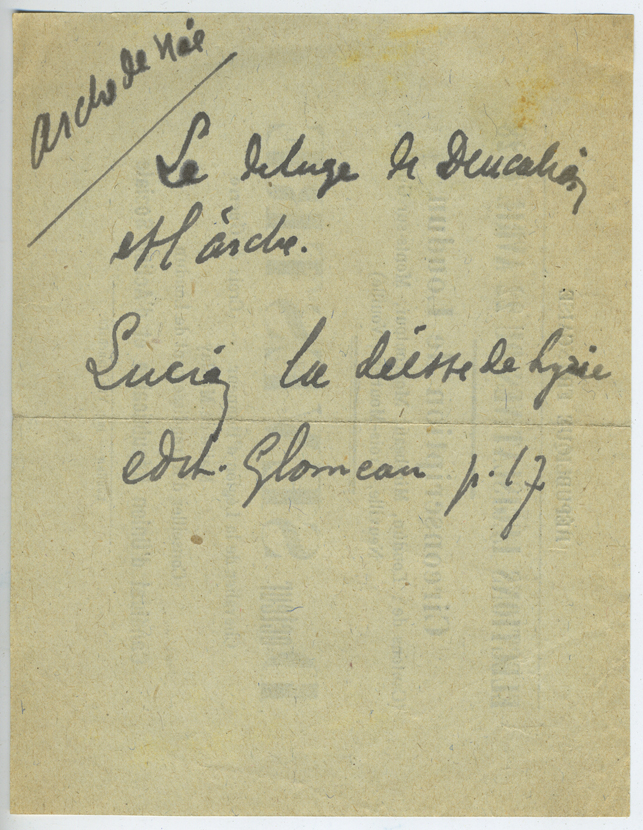 Arche de Noé
Le deluge de Deucalion
et l'arche.
Lucien la déesse de Syrie
edit. Glomeau p. 17